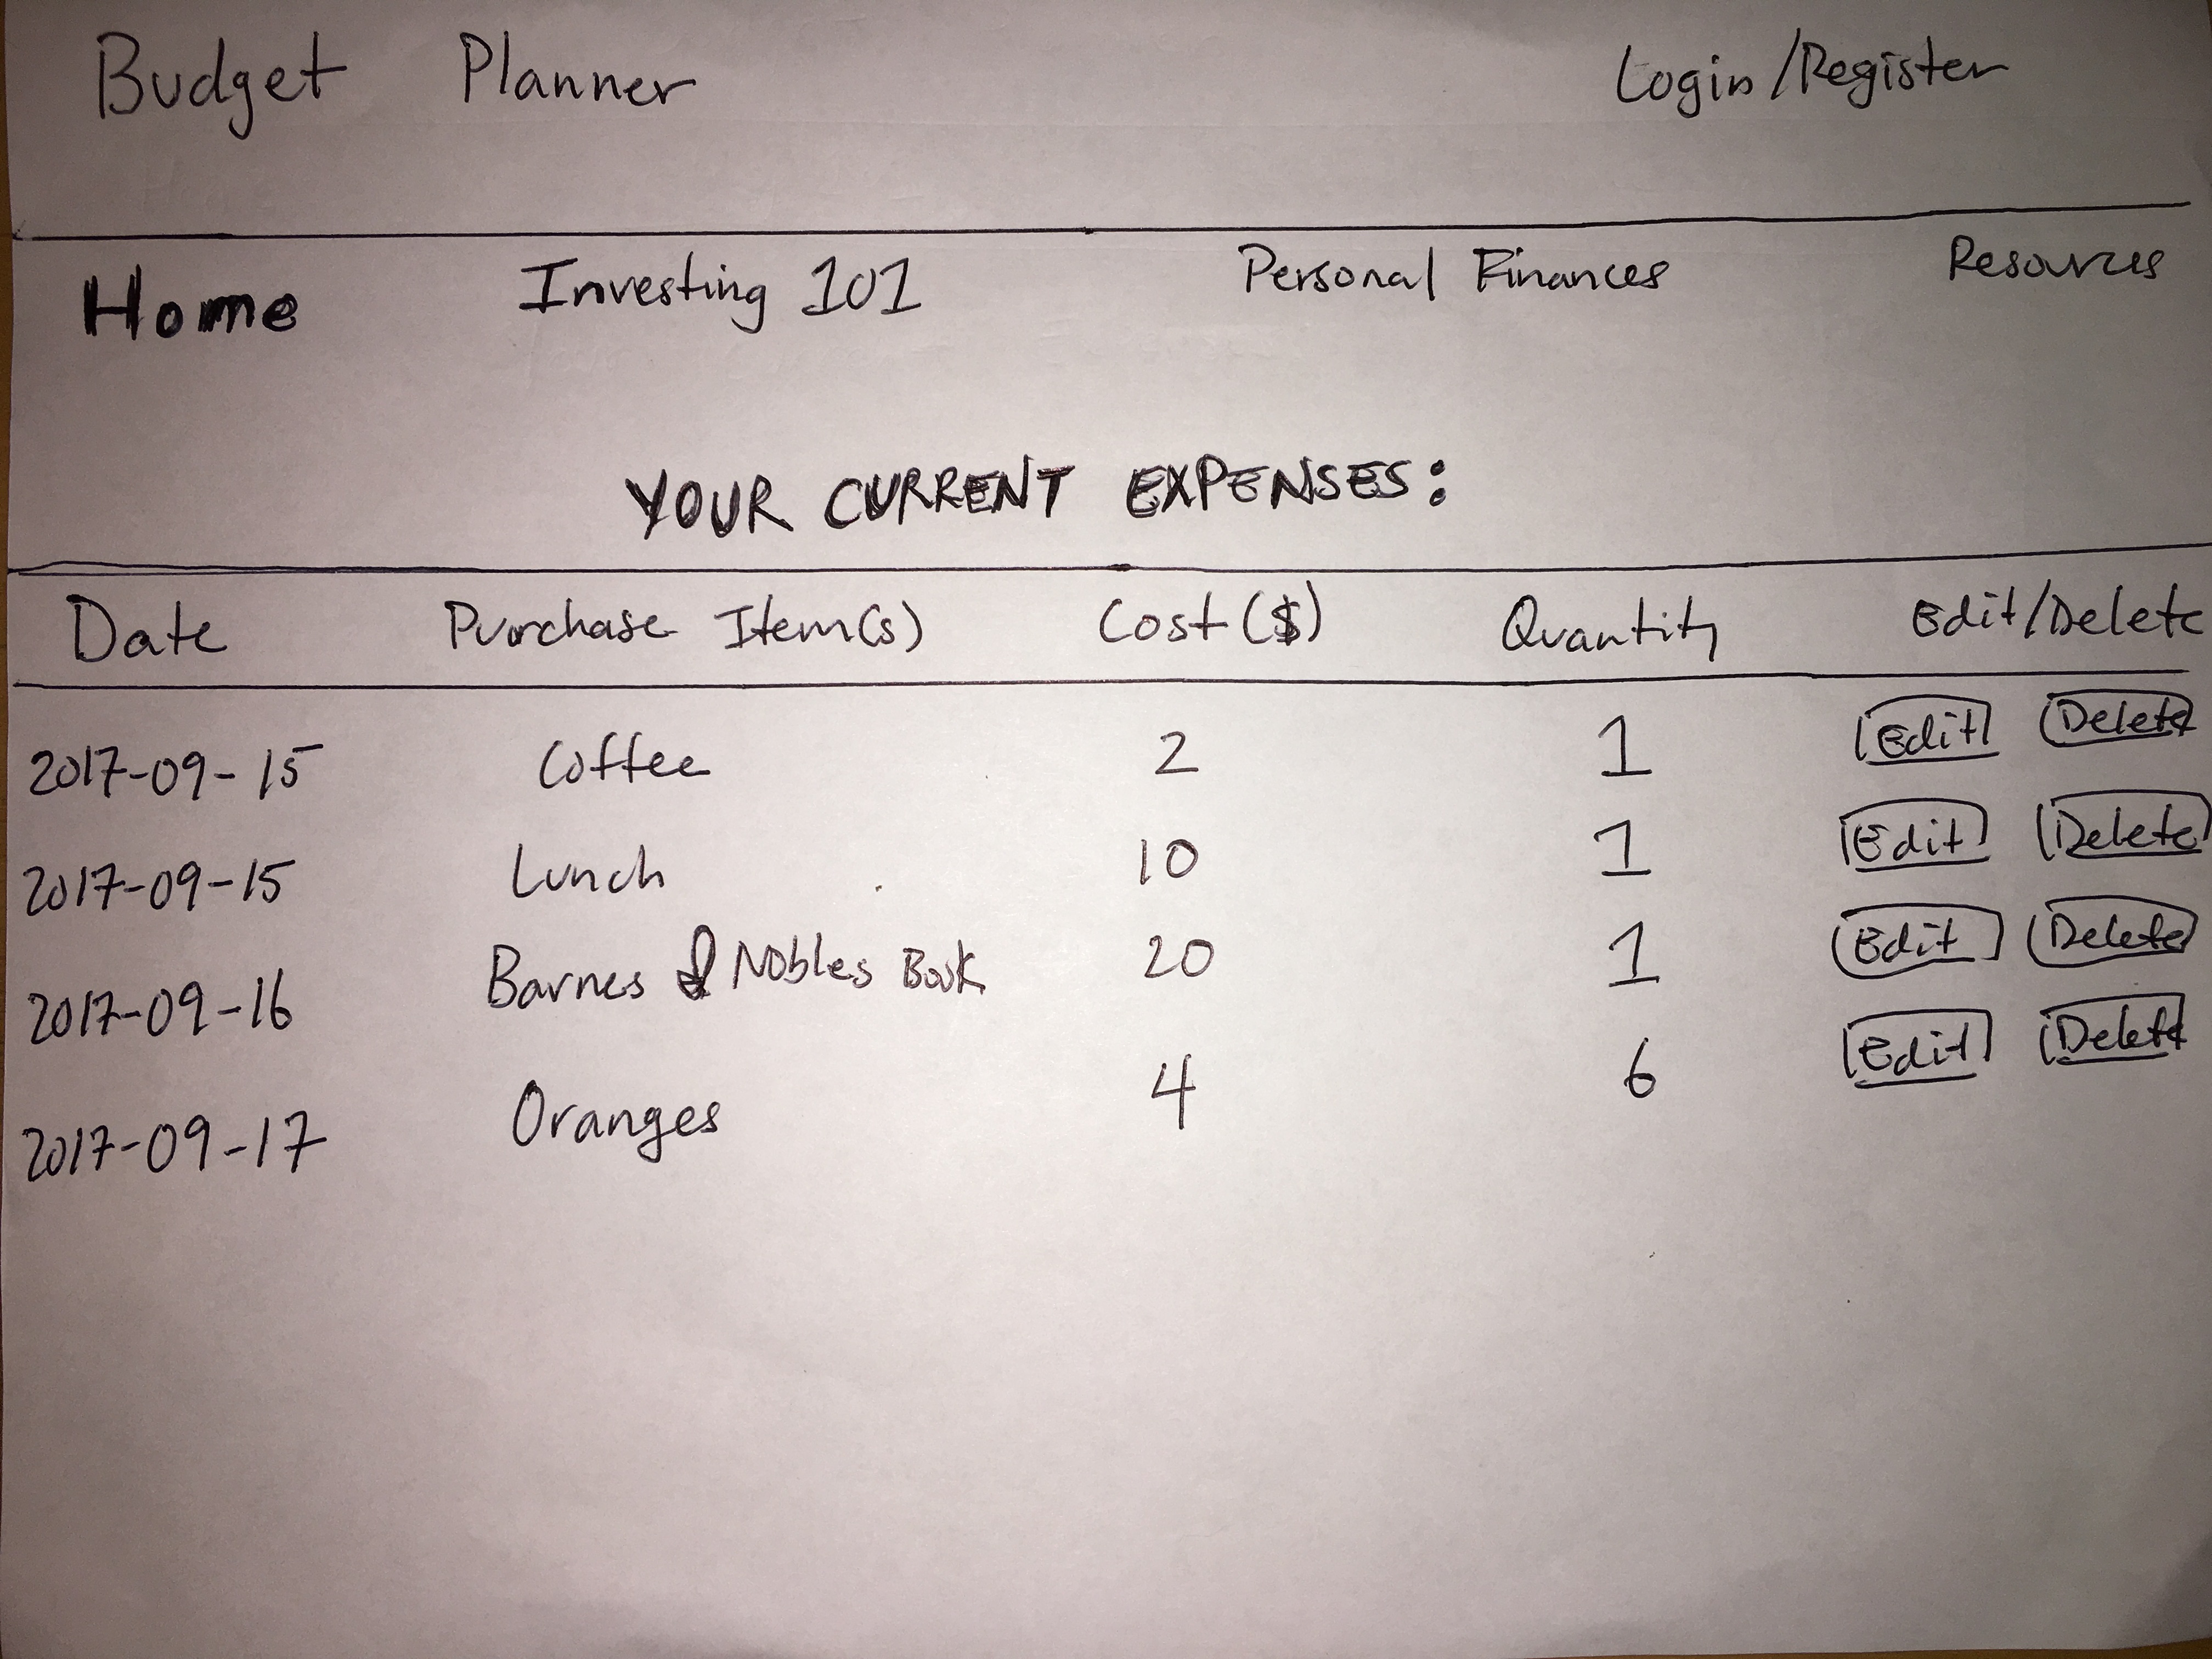 Budget Planner Login/Register
Home Investing 101 Personal Finances Resources
YOUR CURRENT EXPENSES:
Date Purchase Item(s) Cost($) Quantity Edit/Delete
2017-09-15 Coffee 2 1 Edit Delete
2017-09-15 Lunch 10 1 Edit Delete
2017-09-16 Barnes & Nobles Book 20 1 Edit Delete
2017-09-17 Oranges 4 6 Edit Delete